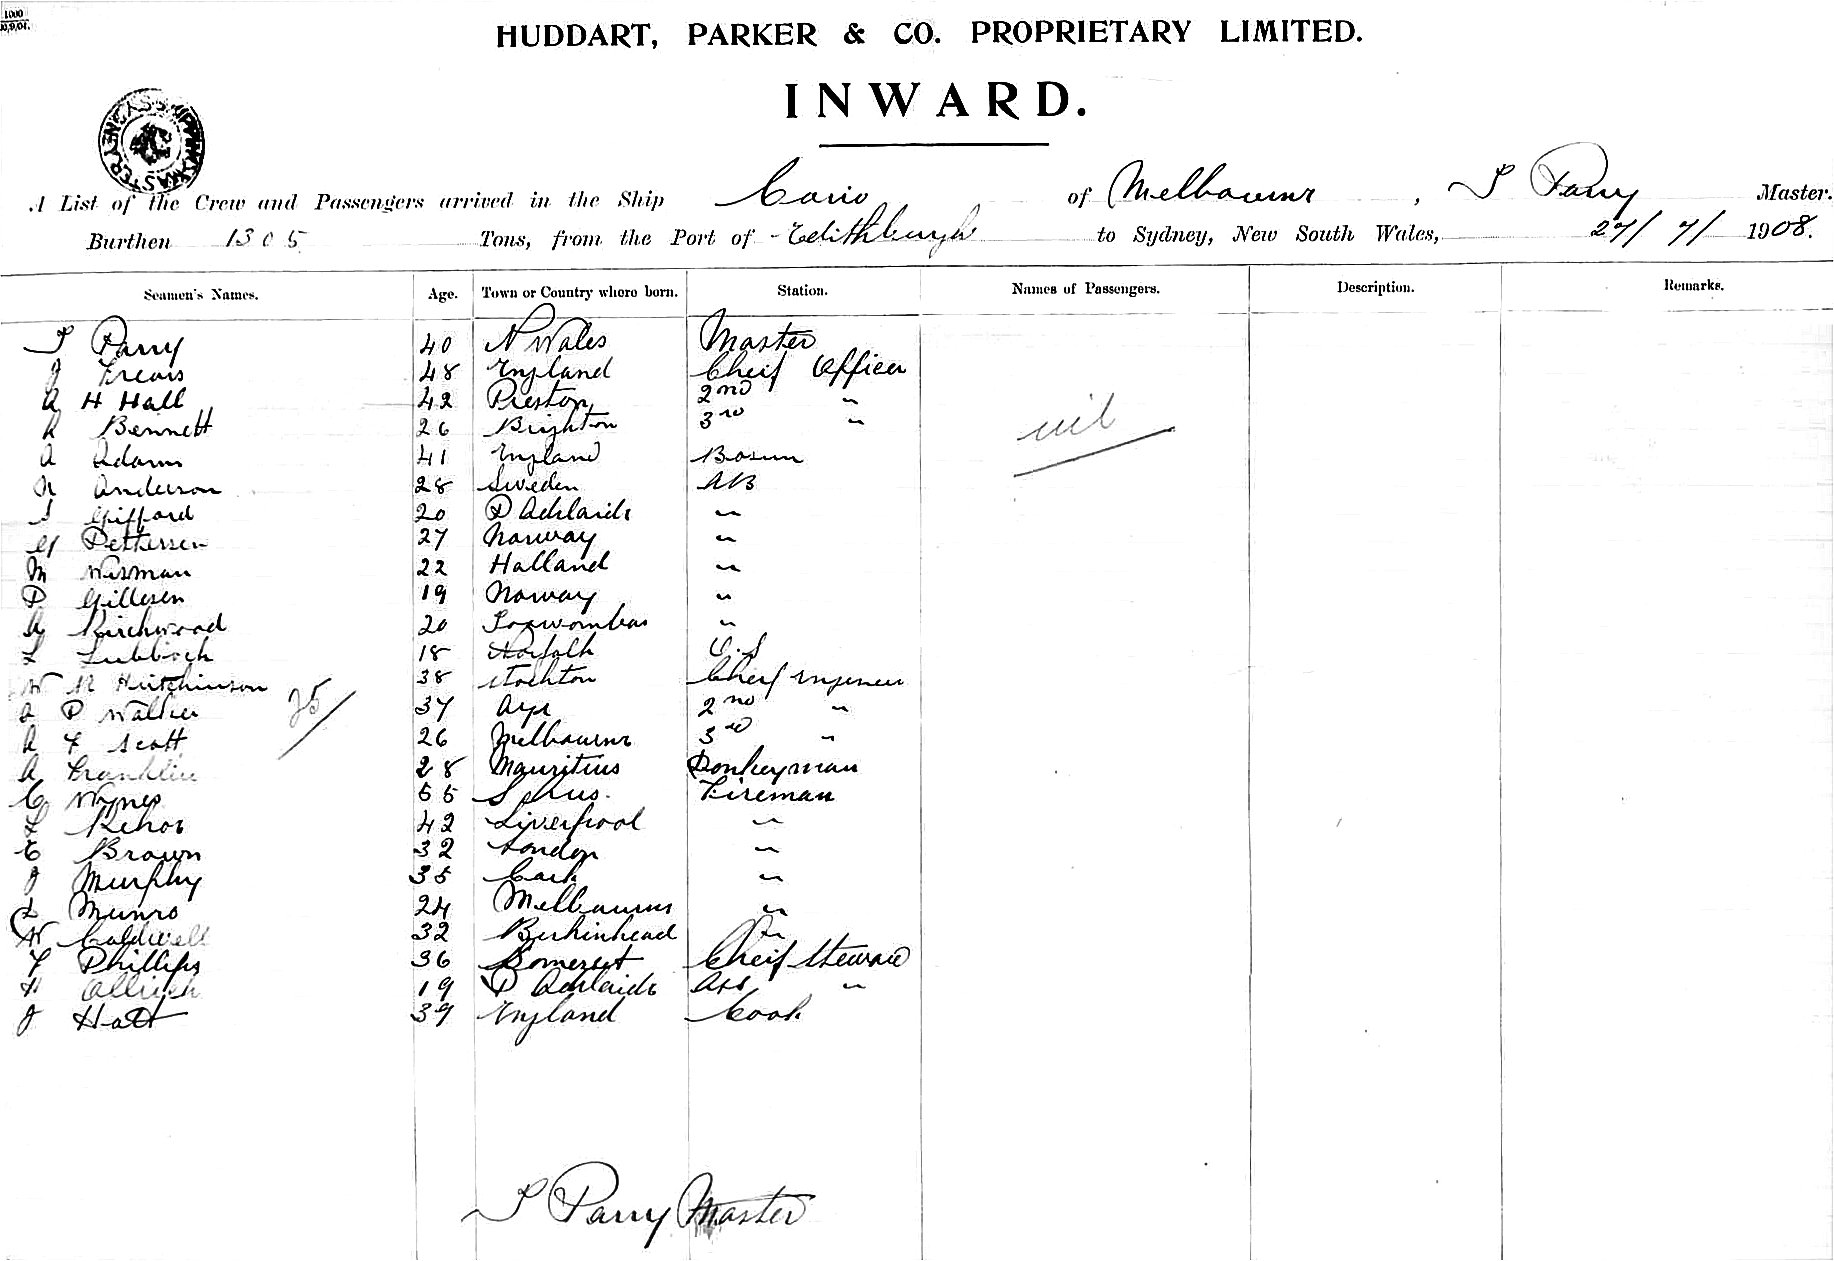 1000
HUDDART, PARKER & CO. PROPRIETARY LIMITED.
INWARD.
A List of the Crew and Passengers arrived in the Ship Corio of Melbourne, T Parry Master.
Burthen 1305 Tons, from the Port of Edithburgh to Sydney, New South Wales, 27/7/1908.
Seamen's Names. Age. Town or Country where born. Station. Names of Passengers. Description. Remarks.
T Parry 40 N Wales Master
J Frears 48 England Cheif Officer
A H Hall 42 Preston 2nd "
R Bennett 26 Brighton 3rd "
nil
A Adams 41 England Bosun
N Anderson 28 Sweden AB
S Gifford 20 P Adelaide "
G Pettersen 27 Norway "
M Wisman 22 Holland "
P Gillesen 19 Norway "
A Birchwood 20 Toowoomba "
L Lubbock 18 Norfolk O.S
W R Hutchinson 38 Stockton Cheif Engineer
25/
A P Walker 37 Ayr 2nd "
A F Scott 26 Melbourne 3rd "
A Franklin 28 Mauritius Donkeyman
C Wynes 55 Fireman
42 Liverpool "
E Brown 32 London "
J Murphy 35 Cork "
D Munro 24 Melbourne "
W Caldwell 32 Berkinhead "
F Phillips 36 Somerset Cheif Steward
H 19 P Adelaide Ass "
J Hatt 39 England Cook
T Parry Master